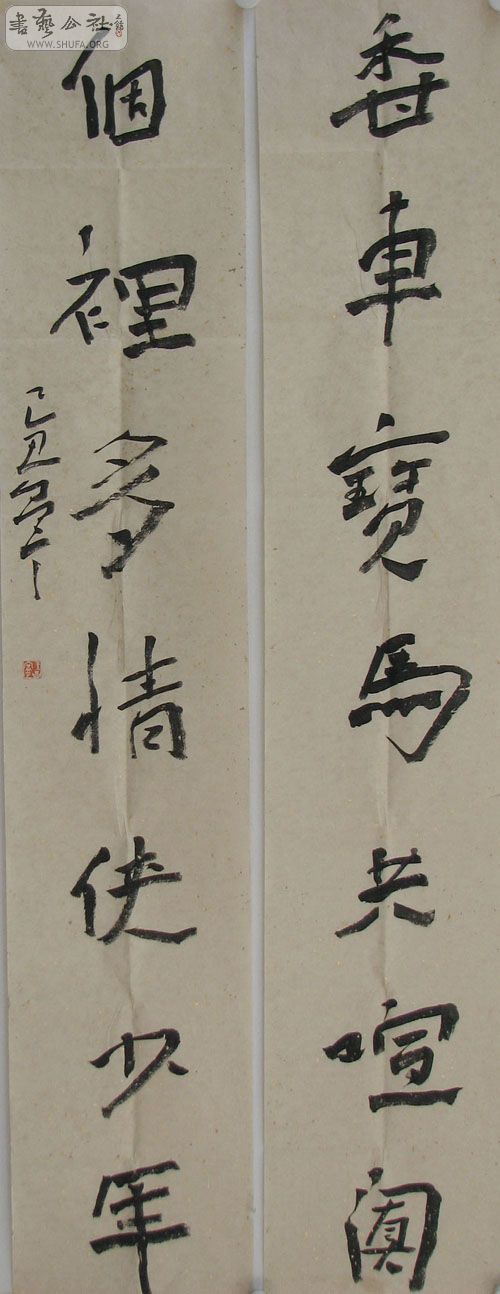 書藝公社
WWW.SHUFA.ORG
香車寶馬共喧闐
個裡多情俠少年
己丑